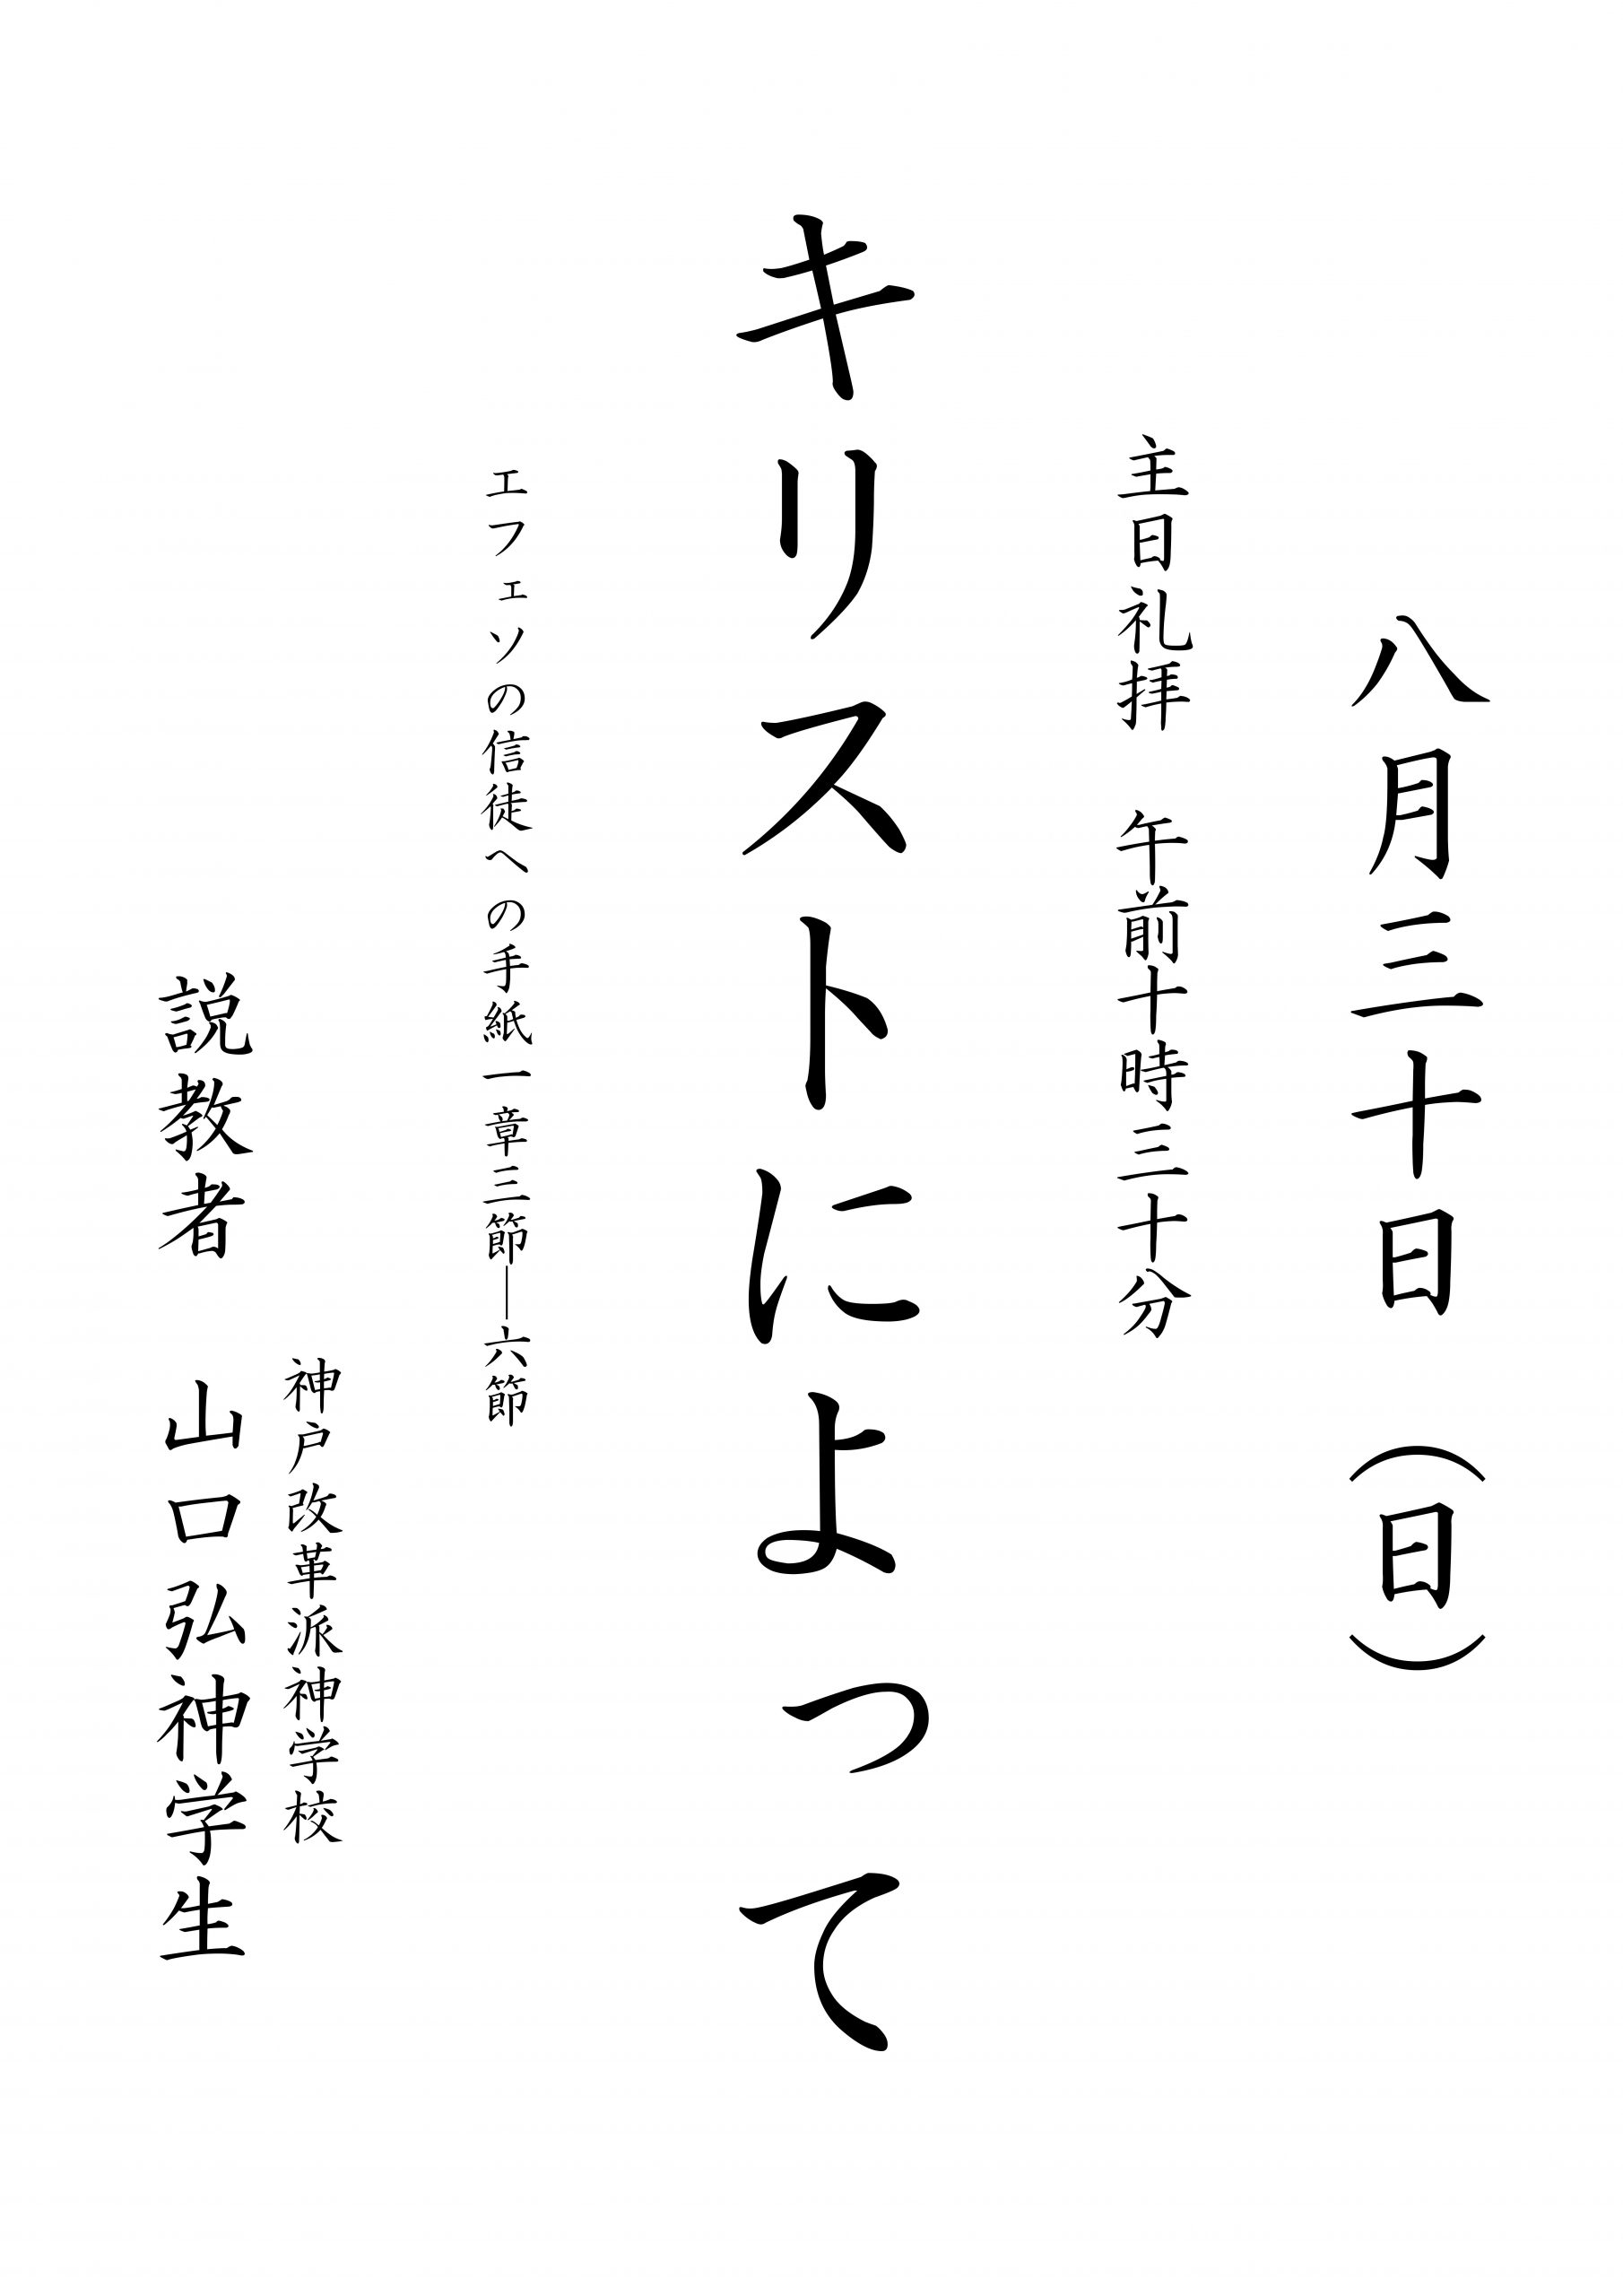 八月三十日（日）
主日礼拝　午前十時三十分
キリストによって
エフェソの信徒への手紙一章三節―六節
神戸改革派神学校
説教者　山口弘神学生